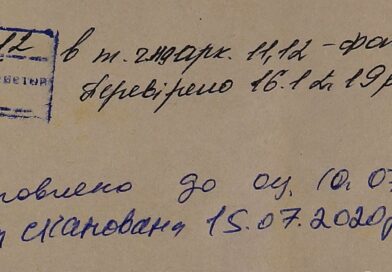 12 в т. ч. арк. 11,12 - фо
Перевірено 16.12.19р
овлено до оц. 10.07
сканована 15.07.2020р